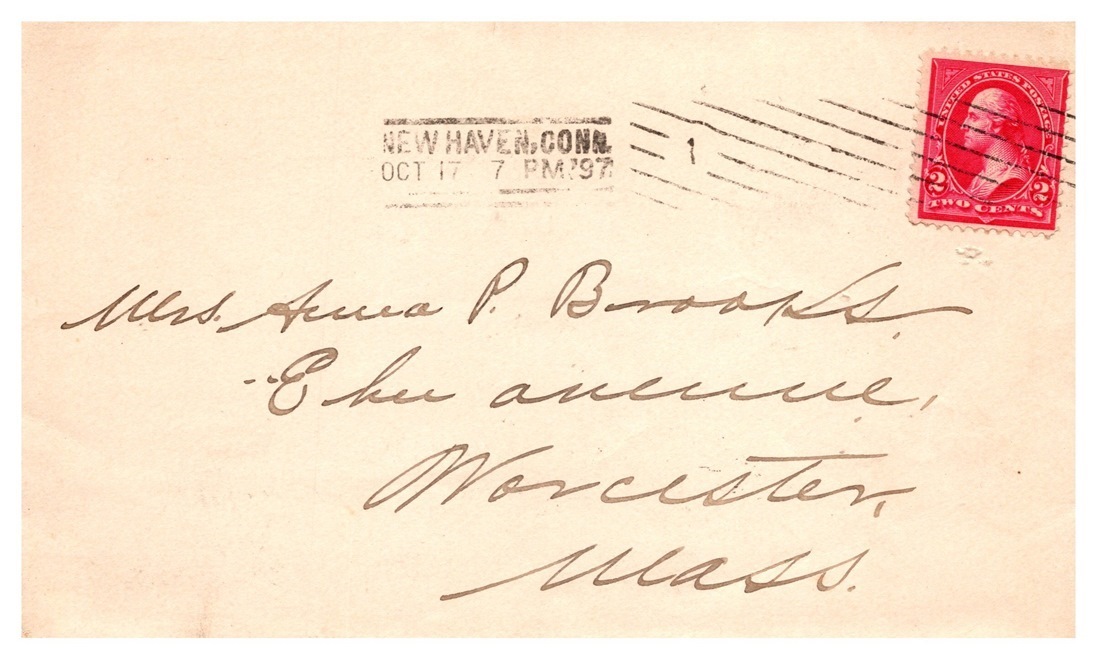 NEW HAVEN, CONN.
OCT 17 7 PM '97
1
UNITED STATES POSTAGE
2 2
TWO CENTS
Mrs. Anna P. Brooks,
avenue,
Worcester,
Mass.